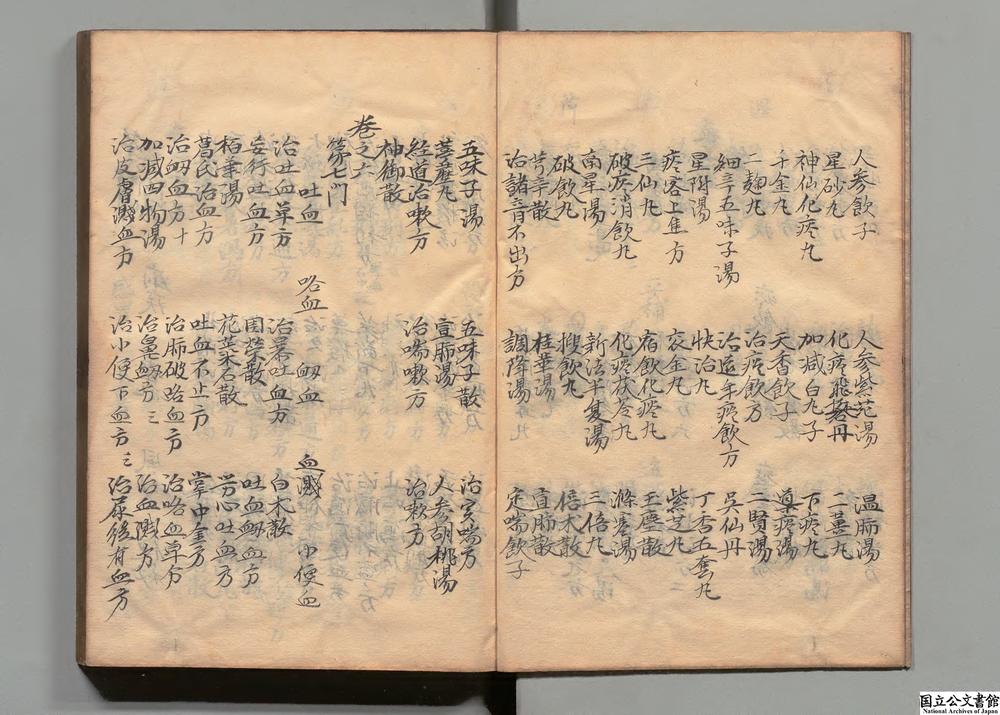 人参飲子　人参紫菀湯　温肺湯
星砂丸　化痰飛礬丹　二薑丸
神仙化痰丸　加減白丸子　下痰丸
千金丸　天香飲子　導痰湯
二麹丸　治痰飲方　二賢湯
細辛五味子湯　治遠年痰飲方　呉仙丹
星附湯　快活丸　丁香五套丸
痰客上焦方　灰金丸　紫芝丸
三仙丸　宿飲化痰丸　玉塵散
破痰消飲丸　化痰茯苓丸　滌痰湯
南星湯　新法半夏湯　三倍丸
破飲丸　搜飲丸　倍木散
芎辛散　桂華湯　宣肺散
治諸音不出方　調降湯　定喘飲子
五味子湯　五味子散　治実喘方
葶藶丸　宣肺湯　人参胡桃湯
経道治嗽方　治喘嗽方　治欬方
神御散
巻之六
第七門
吐血　咯血　衂血　血濺　小便血
治吐血單方　治暴吐血方　白术散
妄行吐血方　团榮散　吐血衂血方
栢華湯　花蘂石散　労心吐血方
葛氏治血方　吐血不止方　掌中金方
治衂血方十　治肺破咯血方　治咯血單方
加减四物湯　治鼻衂方三　治血濺方
治皮膚濺血方　治小便下血方三　治尿後有血方
国立公文書館
National Archives of Japan